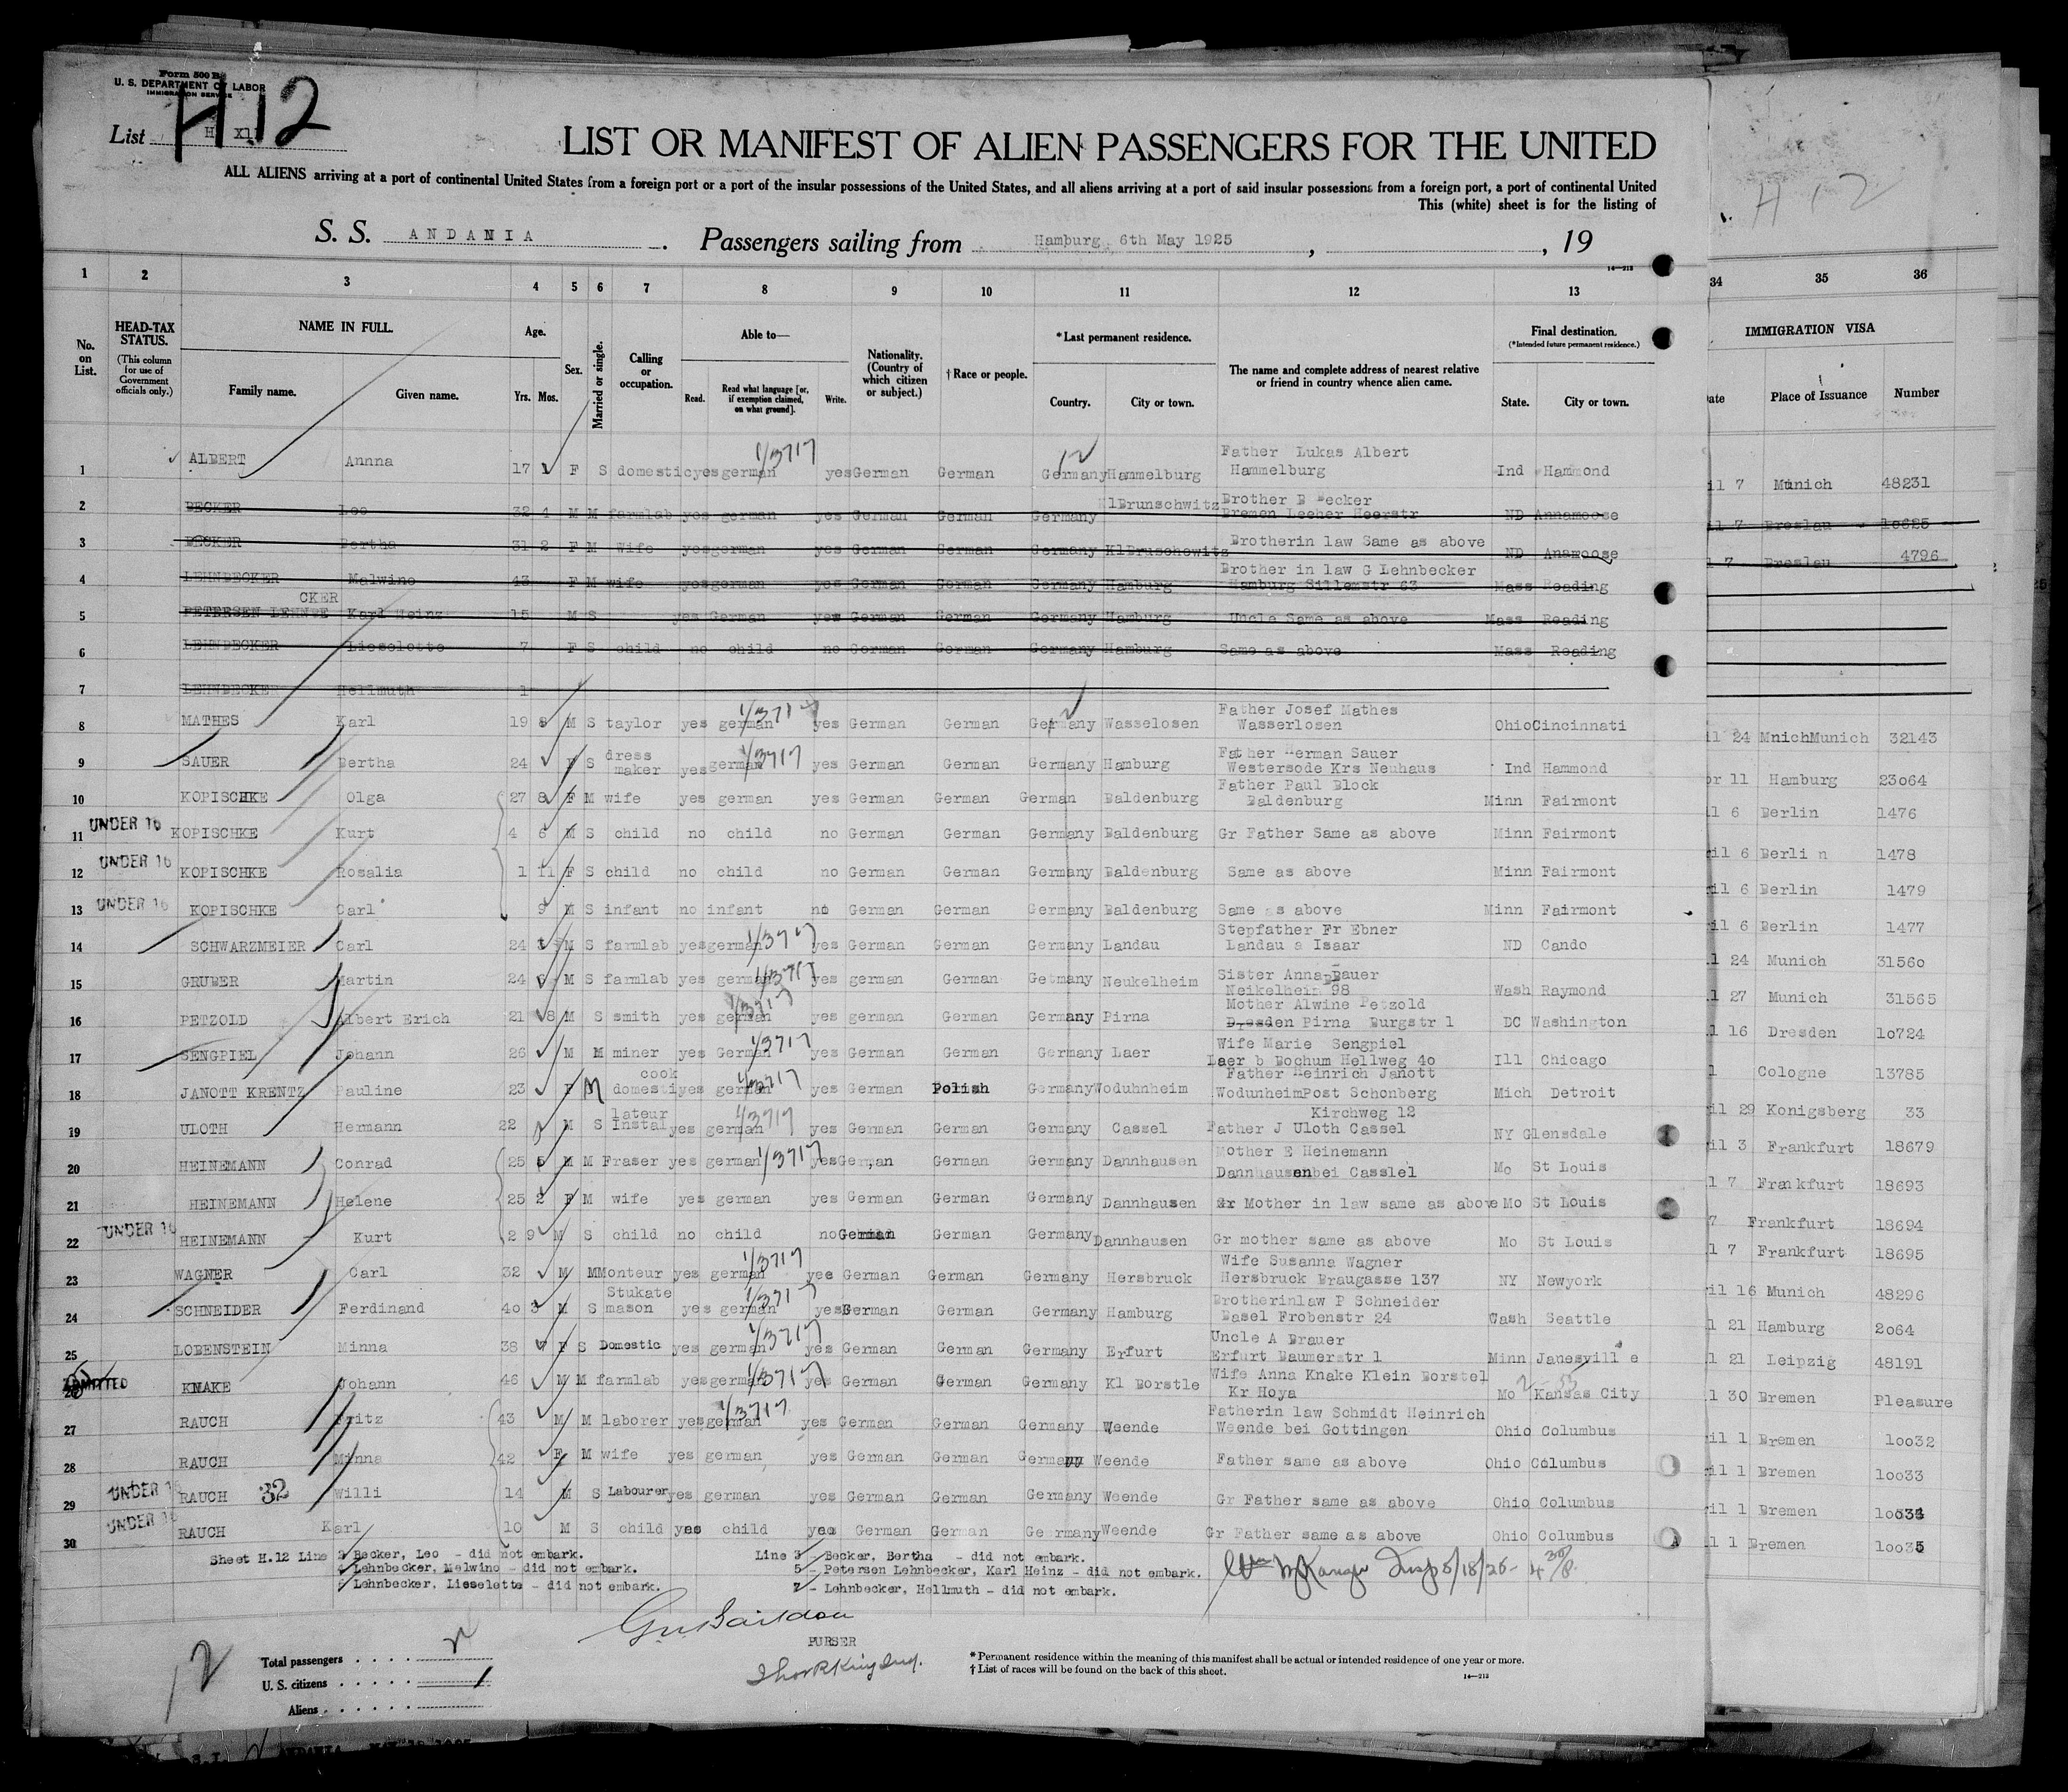 Form 500 B
U. S. DEPARTMENT OF LABOR
IMMIGRATION SERVICE
H 12
List H X1
LIST OR MANIFEST OF ALIEN PASSENGERS FOR THE UNITED
ALL ALIENS arriving at a port of continental United States from a foreign port or a port of the insular possessions of the United States, and all aliens arriving at a port of said insular possessions from a foreign port, a port of continental United
This (white) sheet is for the listing of
H 12
S. S. ANDANIA . Passengers sailing from Hamburg 6th May 1925 , , 19
14—213
1 2 3 4 5 6 7 8 9 10 11 12 13 34 35 36
No. on List.
HEAD-TAX STATUS.
(This column for use of Government officials only.)
NAME IN FULL.
Family name. Given name.
Age.
Yrs. Mos.
Sex.
Married or single.
Calling or occupation.
Able to—
Read. Read what language [or, if exemption claimed, on what ground]. Write.
Nationality. (Country of which citizen or subject.)
† Race or people.
* Last permanent residence.
Country. City or town.
The name and complete address of nearest relative or friend in country whence alien came.
Final destination.
(*Intended future permanent residence.)
State. City or town.
IMMIGRATION VISA
ate Place of Issuance Number
1 ALBERT Annna 17 F S domestic yes german yes German German Germany Hammelburg Father Lukas Albert Hammelburg Ind Hammond il 7 Munich 48231
2 BECKER Leo 32 4 M M farmlab yes german yes German German Germany KlBrunschwitz Brother B Becker Bremen Leeher Heerstr ND Annamoose il 7 Breslau 10625
3 BECKER Bertha 31 2 F M Wife yes german yes German German Germany KlBruschowitz Brotherin law Same as above ND Anamoose l 7 Breslau 4796
4 LEHNBECKER Malwine 43 F M wife yes german yes German German Germany Hamburg Brother in law G Lehnbecker Hamburg Sillemstr 63 Mass Reading
5 PETERSEN LEHNBE CKER Karl Heinz 15 M S yes German yes German German Germany Hamburg Uncle Same as above Mass Reading
6 LEHNBECKER Lieselotte 7 F S child no child no German German Germany Hamburg Same as above Mass Reading
7 LEHNBECKER Hellmuth 1
8 MATHES Karl 19 8 M S taylor yes german yes German German Germany Wasselosen Father Josef Mathes Wasserlosen Ohio Cincinnati il 24 MnichMunich 32143
9 SAUER Bertha 24 F S dress maker yes german yes German German Germany Hamburg Father Herman Sauer Westersode Krs Neuhaus Ind Hammond pr 11 Hamburg 23064
10 KOPISCHKE Olga 27 8 F M wife yes german yes German German German Baldenburg Father Paul Block Baldenburg Minn Fairmont il 6 Berlin 1476
11 UNDER 16 KOPISCHKE Kurt 4 6 M S child no child no German German Germany Baldenburg Gr Father Same as above Minn Fairmont il 6 Berli n 1478
12 UNDER 16 KOPISCHKE Rosalia 1 11 F S child no child no German German Germany Baldenburg Same as above Minn Fairmont il 6 Berlin 1479
13 UNDER 16 KOPISCHKE Carl 9 M S infant no infant no German German Germany Baldenburg Same as above Minn Fairmont il 6 Berlin 1477
14 SCHWARZMEIER Carl 24 M S farmlab yes german yes German German Germany Landau Stepfather Fr Ebner Landau a Isaar ND Cando l 24 Munich 31560
15 GRUBER Martin 24 6 M S farmlab yes german yes german German Getmany Neukelheim Sister Anna Bauer Neikelheim 98 Wash Raymond l 27 Munich 31565
16 PETZOLD Albert Erich 21 8 M S smith yes german yes german German Germany Pirna Mother Alwine Petzold Dresden Pirna Burgstr 1 DC Washington l 16 Dresden 10724
17 SENGPIEL Johann 26 M M miner yes German yes German German Germany Laer Wife Marie Sengpiel Laer b Bochum Hellweg 40 Ill Chicago l Cologne 13785
18 JANOTT KRENTZ Pauline 23 F M cook domesti yes german yes German Polish Germany Woduhnheim Father Heinrich Janott WodunheimPost Schonberg Mich Detroit il 29 Konigsberg 33
19 ULOTH Hermann 22 M S lateur Instal yes german yes German German Germany Cassel Kirchweg 12 Father J Uloth Cassel NY Glensdale il 3 Frankfurt 18679
20 HEINEMANN Conrad 25 5 M M Fraser yes german yes German German Germany Dannhausen Mother E Heinemann Dannhausenbei Casslel Mo St Louis l 7 Frankfurt 18693
21 HEINEMANN Helene 25 2 F M wife yes german yes German German Germany Dannhausen Gr Mother in law same as above Mo St Louis 7 Frankfurt 18694
22 UNDER 16 HEINEMANN Kurt 2 9 M S child no child no German German Germany Dannhausen Gr mother same as above Mo St Louis l 7 Frankfurt 18695
23 WAGNER Carl 32 M M Monteur yes german yes German German Germany Hersbruck Wife Susanna Wagner Hersbruck Braugasse 137 NY Newyork il 16 Munich 48296
24 SCHNEIDER Ferdinand 40 3 M S Stukate mason yes german yes German German Germany Hamburg Brotherinlaw P Schneider Basel Frobenstr 24 Wash Seattle l 21 Hamburg 2064
25 LOBENSTEIN Minna 38 7 F S Domestic yes german yes German German Germany Erfurt Uncle A Brauer Erfurt Daumerstr 1 Minn Janesvill e l 21 Leipzig 48191
26 ADMITTED KNAKE Johann 46 M M farmlab yes german yes German German Germany Kl Borstle Wife Anna Knake Klein Borstel Kr Hoya Mo Kansas City l 30 Bremen Pleasure
27 RAUCH Fritz 43 M M laborer yes german yes German German Germany Weende Fatherin law Schmidt Heinrich Weende bei Gottingen Ohio Columbus il 1 Bremen 10032
28 RAUCH Minna 42 F M wife yes german yes German German Germany Weende Father same as above Ohio Columbus il 1 Bremen 10033
29 UNDER 16 RAUCH 32 Willi 14 M S Labourer yes german yes German German Germany Weende Gr Father same as above Ohio Columbus il 1 Bremen 10034
30 UNDER 16 RAUCH Karl 10 M S child yes child yes German German Germany Weende Gr Father same as above Ohio Columbus l 1 Bremen 10035
Sheet H.12 Line 2 Becker, Leo - did not embark. Line 3 - Becker, Bertha - did not embark.
4 Lehnbecker, Melwino - did not embark. 5 - Petersen Lehnbecker, Karl Heinz - did not embark.
6 Lehnbecker, Lieselette - did not embark. 7 - Lehnbecker, Hellmuth - did not embark.
PURSER
12
Total passengers . . . .
U. S. citizens . . . . .
Aliens . . . . . .
* Permanent residence within the meaning of this manifest shall be actual or intended residence of one year or more.
† List of races will be found on the back of this sheet.
14—213